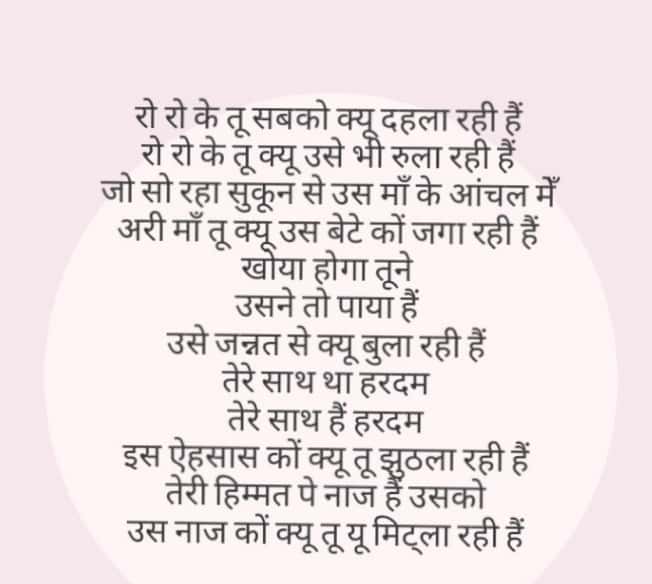 रो रो के तू सबको क्यू दहला रही हैं
रो रो के तू क्यू उसे भी रुला रही हैं
जो सो रहा सुकून से उस माँ के आंचल मेँ
अरी माँ तू क्यू उस बेटे कों जगा रही हैं
खोया होगा तूने
उसने तो पाया हैं
उसे जन्नत से क्यू बुला रही हैं
तेरे साथ था हरदम
तेरे साथ हैं हरदम
इस ऐहसास कों क्यू तू झुठला रही हैं
तेरी हिम्मत पे नाज हैं उसको
उस नाज कों क्यू तू यू मिट्ला रही हैं